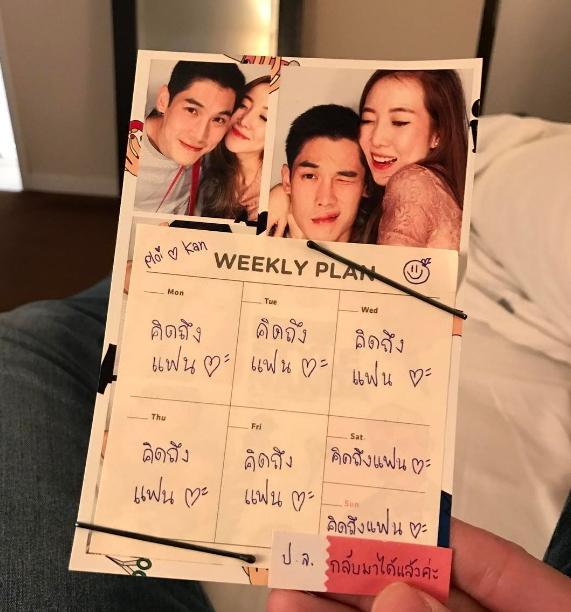 Ploi ♡ Kan
WEEKLY PLAN
Mon
คิดถึง
แฟน ♡
Tue
คิดถึง
แฟน ♡
Wed
คิดถึง
แฟน ♡
Thu
คิดถึง
แฟน ♡
Fri
คิดถึง
แฟน ♡
Sat
คิดถึงแฟน ♡
Sun
คิดถึงแฟน ♡
ป.ล. กลับมาได้แล้วค่ะ